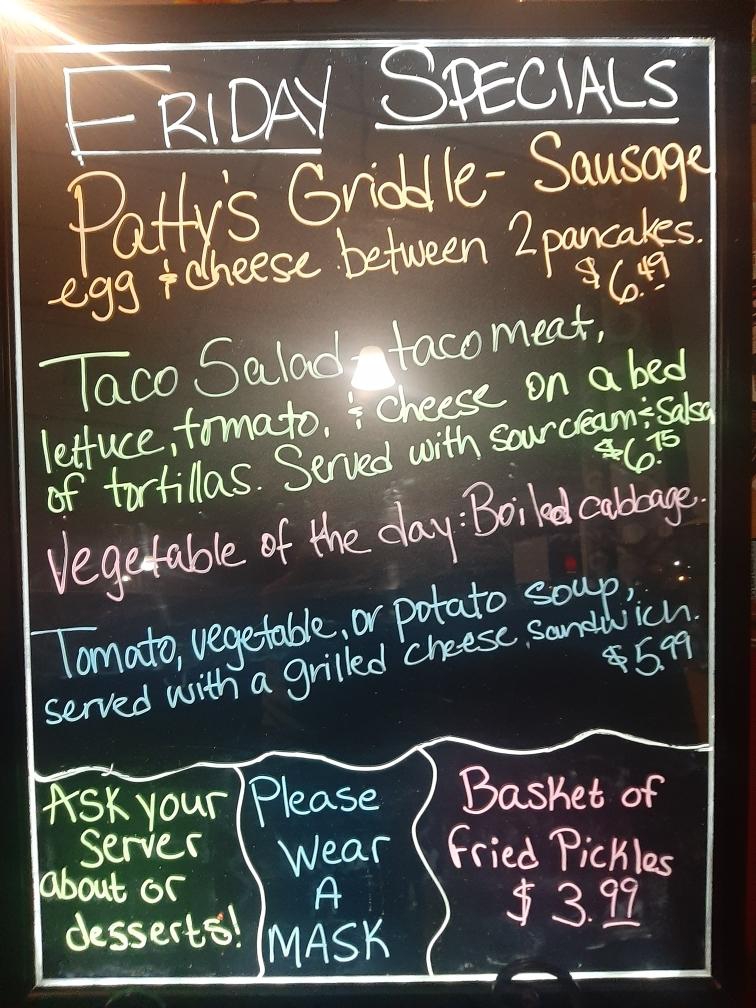 FRIDAY SPECIALS
Patty's Griddle- Sausage
egg & cheese between 2 pancakes.
$6.49
Taco Salad - taco meat,
lettuce, tomato, & cheese on a bed
of tortillas. Served with sour cream & Salsa
$6.75
Vegetable of the day: Boiled cabbage.
Tomato, vegetable, or potato soup,
served with a grilled cheese sandwich.
$5.99
Ask your
Server
about or
desserts!
Please
Wear
A
MASK
Basket of
Fried Pickles
$3.99